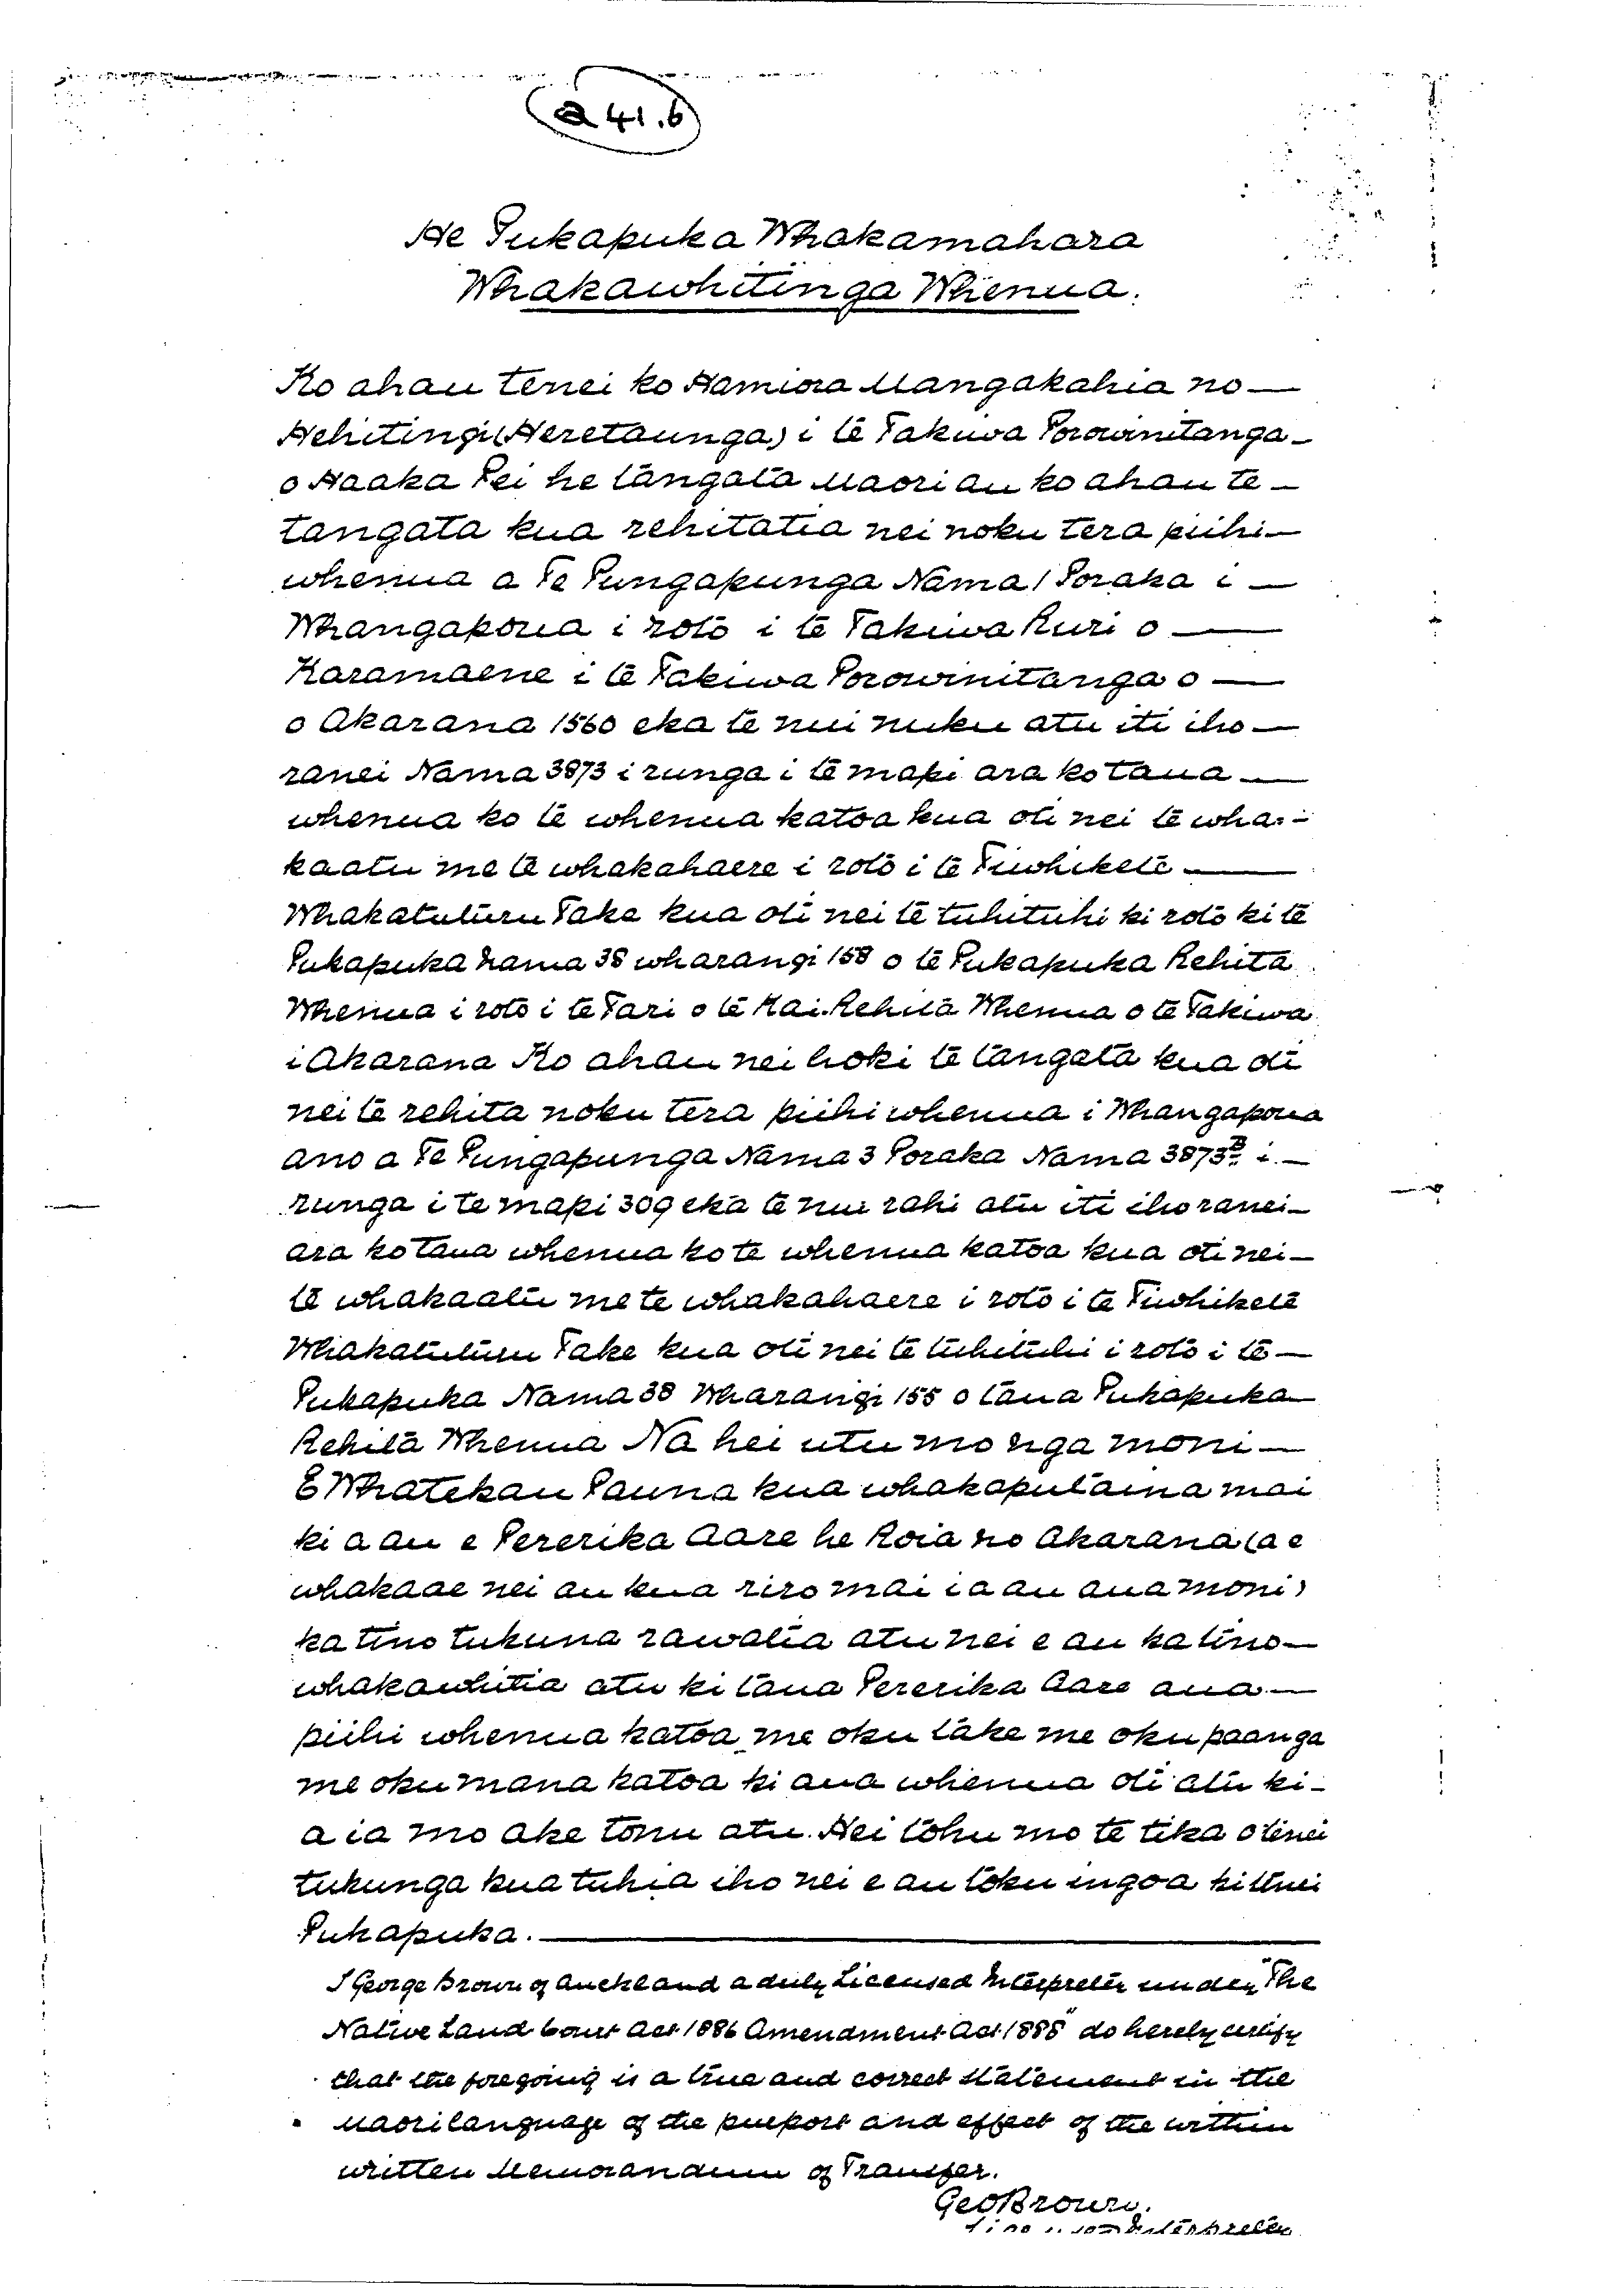 a 41.6
He Pukapuka Whakamahara
Whakawhitinga Whenua.
Ko ahau tenei ko Hamiora Mangakahia no —
Hehitingi (Heretaunga) i te Takiwa Porowinitanga —
o Haaka Pei he tangata Maori au ko ahau te —
tangata kua rehitatia nei noku tera piihi —
whenua a Te Pungapunga Nama 1 Poraka i —
Whangapoua i roto i te Takiwa Ruri o —
Karamaene i te Takiwa Porowinitanga o —
o Akarana 1560 eka te nui nuku atu iti iho —
ranei Nama 3873 i runga i te mapi ara ko taua —
whenua ko te whenua katoa kua oti nei te wha-
kaatu me te whakahaere i roto i te Tiwhikete —
Whakatuturu Take kua oti nei te tuhituhi ki roto ki te
Pukapuka Nama 38 wharangi 158 o te Pukapuka Rehita
Whenua i roto i te Tari o te Kai Rehita Whenua o te Takiwa
i Akarana Ko ahau nei hoki te tangata kua oti
nei te rehita noku tera piihi whenua i Whangapoua
ano a Te Pungapunga Nama 3 Poraka Nama 3873B i —
runga i te mapi 309 eka te nui rahi atu iti iho ranei —
ara ko taua whenua ko te whenua katoa kua oti nei —
te whakaatu me te whakahaere i roto i te Tiwhikete
Whakatuturu Take kua oti nei te tuhituhi i roto i te —
Pukapuka Nama 38 Wharangi 155 o taua Pukapuka
Rehita Whenua Na hei utu mo nga moni —
E Whatekau Pauna kua whakaputaina mai
ki a au e Pererika Aare he Roia no Akarana (a e
whakaae nei au kua riro mai i a au aua moni)
ka tino tukuna rawatia atu nei e au ka tino —
whakawhitia atu ki taua Pererika Aare aua —
piihi whenua katoa me oku take me oku paanga
me oku mana katoa ki aua whenua oti atu ki —
a ia mo ake tonu atu. Hei tohu mo te tika o tenei
tukunga kua tuhia iho nei e au toku ingoa ki tenei
Pukapuka.
I George Brown of Auckland a duly Licensed Interpreter under "The
Native Land Court Act 1886 Amendment Act 1888" do hereby certify
that the foregoing is a true and correct statement in the
Maori language of the purport and effect of the within
written Memorandum of Transfer.
Geo Brown.
Interpreter